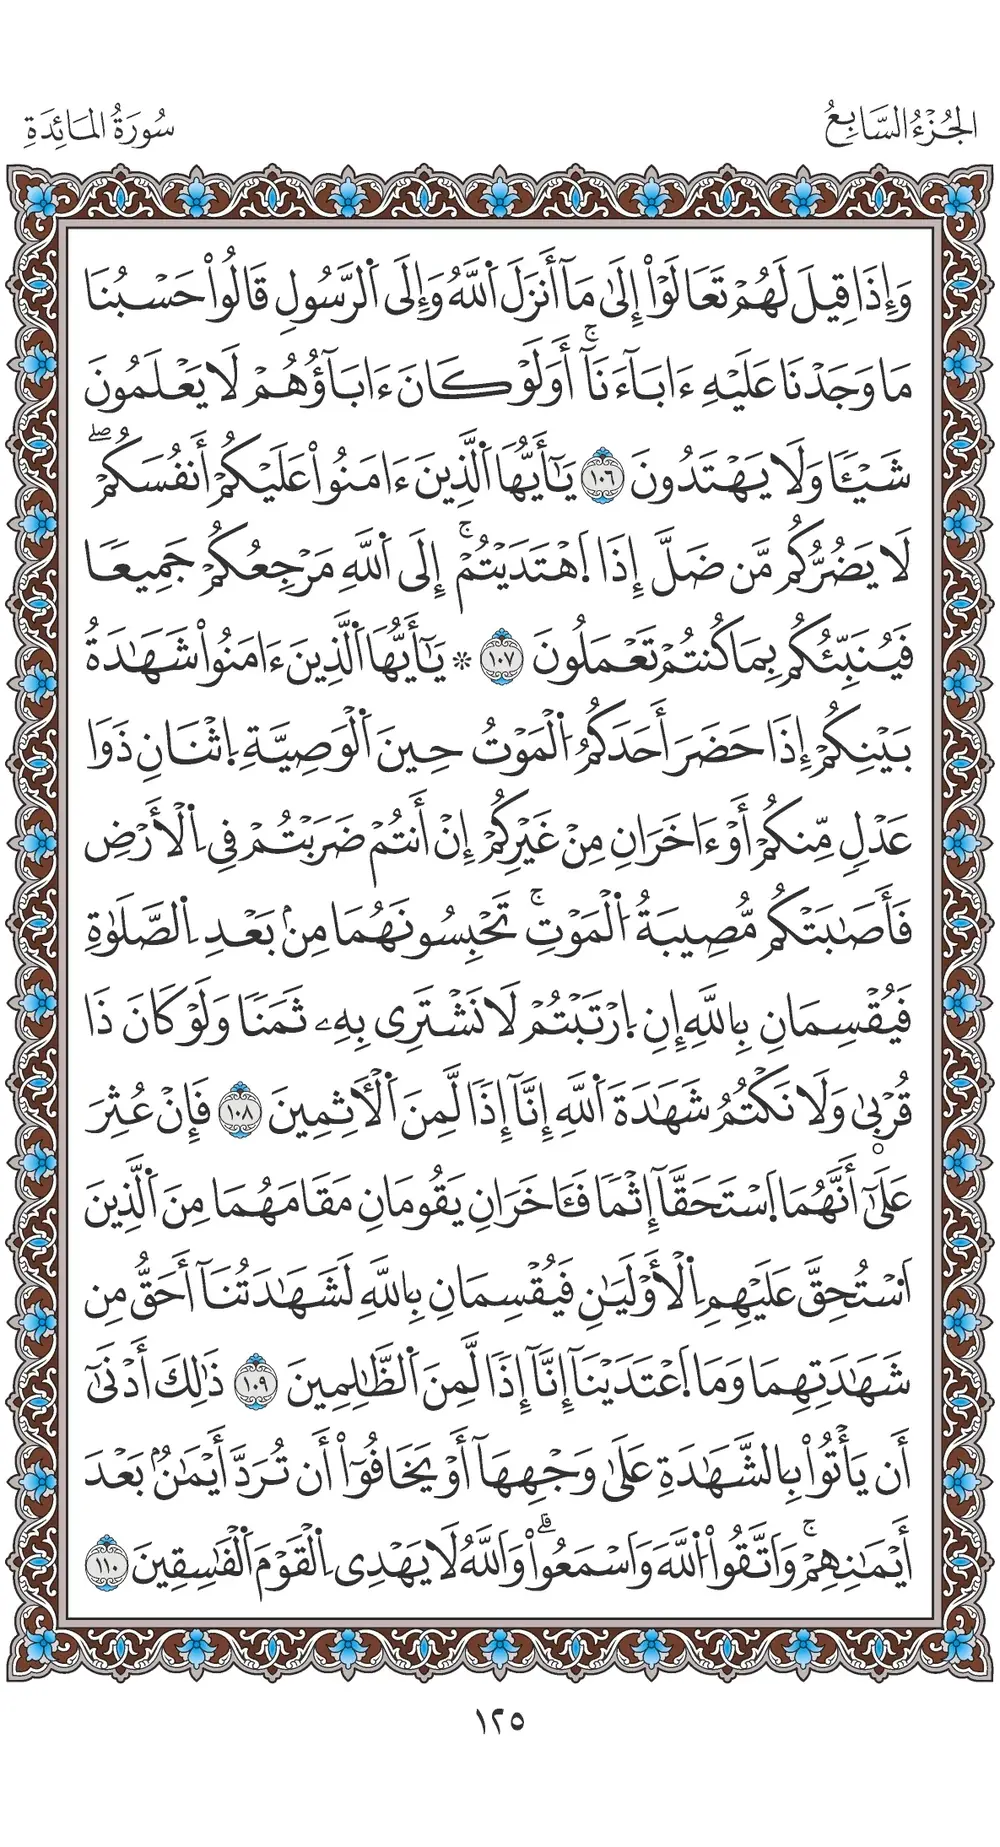 الجُزْءُ السَّابِعُ
سُورَةُ المَائِدَةِ
وَإِذَا قِيلَ لَهُمْ تَعَالَوْاْ إِلَىٰ مَآ أَنزَلَ اَ۬للَّهُ وَإِلَى اَ۬لرَّسُولِ قَالُواْ حَسْبُنَا
مَا وَجَدْنَا عَلَيْهِ ءَابَآءَنَآۚ أَوَلَوْ كَانَ ءَابَآؤُهُمْ لَا يَعْلَمُونَ
شَيْـٔٗا وَلَا يَهْتَدُونَ ١٠٦ يَـٰٓأَيُّهَا اَ۬لَّذِينَ ءَامَنُواْ عَلَيْكُمْ أَنفُسَكُمْۖ
لَا يَضُرُّكُم مَّن ضَلَّ إِذَا اَ۪هْتَدَيْتُمْۚ إِلَى اَ۬للَّهِ مَرْجِعُكُمْ جَمِيعٗا
فَيُنَبِّئُكُم بِمَا كُنتُمْ تَعْمَلُونَ ١٠٧ ۞ يَـٰٓأَيُّهَا اَ۬لَّذِينَ ءَامَنُواْ شَهَـٰدَةُ
بَيْنِكُمْ إِذَا حَضَرَ أَحَدَكُمُ اُ۬لْمَوْتُ حِينَ اَ۬لْوَصِيَّةِ اِ۪ثْنَانِ ذَوَا
عَدْلٖ مِّنكُمْ أَوْ ءَاخَرَانِ مِنْ غَيْرِكُمْ إِنْ أَنتُمْ ضَرَبْتُمْ فِي اِ۬لْأَرْضِ
فَأَصَـٰبَتْكُم مُّصِيبَةُ اُ۬لْمَوْتِۚ تَحْبِسُونَهُمَا مِنۢ بَعْدِ اِ۬لصَّلَوٰةِ
فَيُقْسِمَانِ بِاللَّهِ إِنِ اِ۪رْتَبْتُمْ لَا نَشْتَرِي بِهِۦ ثَمَنٗا وَلَوْ كَانَ ذَا
قُرْبۭىٰ وَلَا نَكْتُمُ شَهَـٰدَةَ اَ۬للَّهِ إِنَّآ إِذٗا لَّمِنَ اَ۬لْأٓثِمِينَ ١٠٨ فَإِنْ عُثِرَ
عَلَىٰٓ أَنَّهُمَا اَ۪سْتَحَقَّآ إِثْمٗا فَـَٔاخَرَانِ يَقُومَانِ مَقَامَهُمَا مِنَ اَ۬لَّذِينَ
اَ۟سْتُحِقَّ عَلَيْهِمِ اِ۬لْأَوْلَيَـٰنِ فَيُقْسِمَانِ بِاللَّهِ لَشَهَـٰدَتُنَآ أَحَقُّ مِن
شَهَـٰدَتِهِمَا وَمَا اَ۪عْتَدَيْنَآ إِنَّآ إِذٗا لَّمِنَ اَ۬لظَّـٰلِمِينَ ١٠٩ ذَٰلِكَ أَدْنَىٰٓ
أَن يَأْتُواْ بِالشَّهَـٰدَةِ عَلَىٰ وَجْهِهَآ أَوْ يَخَافُوٓاْ أَن تُرَدَّ أَيْمَـٰنُۢ بَعْدَ
أَيْمَـٰنِهِمْۚ وَاتَّقُواْ اُ۬للَّهَ وَاسْمَعُواْۗ وَاللَّهُ لَا يَهْدِي اِ۬لْقَوْمَ اَ۬لْفَـٰسِقِينَ ١١٠
١٢٥